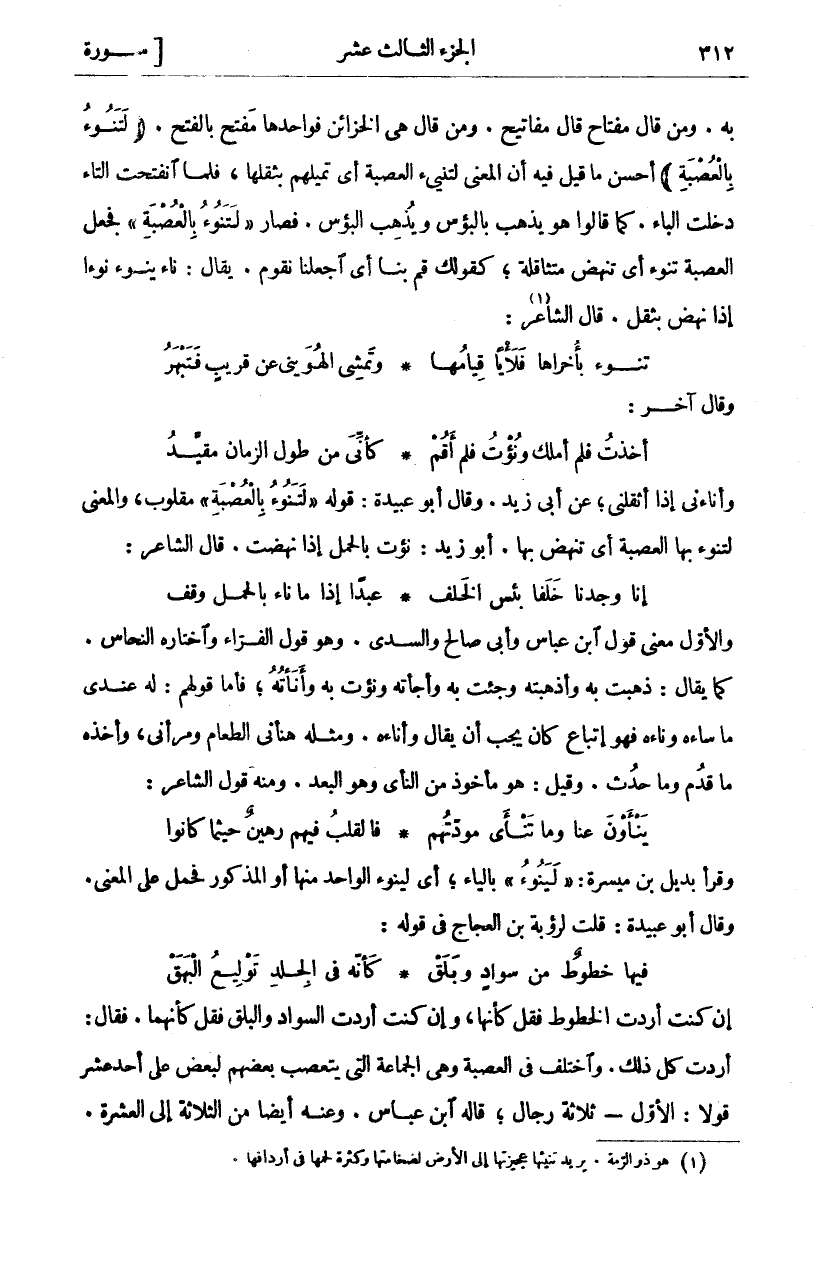 ٣١٢ الجزء الثالث عشر [ سورة
به . ومن قال مفتاح قال مفاتيح . ومن قال هى الخزائن فواحدها مَفتح بالفتح . ﴿ لَتَنُوءُ
بِالْعُصْبَةِ ﴾ أحسن ما قيل فيه أن المعنى لتنىء العصبة أى تميلهم بثقلها ، فلما آنفتحت التاء
دخلت الباء . كما قالوا هو يذهب بالبؤس ويُذهِب البؤس . فصار « لَتَنُوءُ بِالْعُصْبَةِ » فجعل
العصبة تنوء أى تنهض متثاقلة ؛ كقولك قم بنا أى آجعلنا نقوم . يقال : ناء ينوء نوءا
إذا نهض بثقل . قال الشاعر(١) :
تنوء بأُخراها فَلَأْيًا قِيامُها * وتَمشِى الهُوَينى عن قريبٍ فَتَبْهَرُ
وقال آخر :
أخذتُ فلم أملك ونُؤْتُ فلم أَقُمْ * كأنِّىَ من طول الزمان مقيَّدُ
وأناءنى إذا أثقلنى ؛ عن أبى زيد . وقال أبو عبيدة : قوله «لَتَنُوءُ بِالْعُصْبَةِ» مقلوب، والمعنى
لتنوء بها العصبة أى تنهض بها . أبو زيد : نؤت بالحمل إذا نهضت . قال الشاعر :
إنا وجدنا خَلَفا بئس الخَلف * عبدًا إذا ما ناء بالحمل وقف
والأوّل معنى قول آبن عباس وأبى صالح والسدى . وهو قول الفرّاء وآختاره النحاس .
كما يقال : ذهبت به وأذهبته وجئت به وأجأته ونؤت به وأَنَأْتُهُ ؛ فأما قولهم : له عندى
ما ساءه وناءه فهو إتباع كان يجب أن يقال وأناءه . ومثله هنأنى الطعام ومرأنى، وأخذه
ما قدُم وما حدُث . وقيل : هو مأخوذ من النأى وهو البعد . ومنه قول الشاعر :
يَنْأَوْنَ عنا وما تَنْأَى مودّتُهم * فالقلبُ فيهم رهينٌ حيثما كانوا
وقرأ بديل بن ميسرة : « لَيَنُوءُ » بالياء ؛ أى لينوء الواحد منها أو المذكور فحمل على المعنى .
وقال أبو عبيدة : قلت لرؤبة بن العجاج فى قوله :
فيها خطوطٌ من سوادٍ وبَلَقْ * كَأنّه فى الجلدِ تَوْلِيعُ الْبَهَقْ
إن كنت أردت الخطوط فقل كأنها، وإن كنت أردت السواد والبلق فقل كأنهما . فقال :
أردت كل ذلك . وآختلف فى العصبة وهى الجماعة التى يتعصب بعضهم لبعض على أحد عشر
قولا : الأوّل — ثلاثة رجال ؛ قاله آبن عباس . وعنه أيضا من الثلاثة إلى العشرة .
(١) هو ذو الرّمة . يريد تنيئها عجيزتها إلى الأرض لضخامتها وكثرة لحمها فى أردافها .